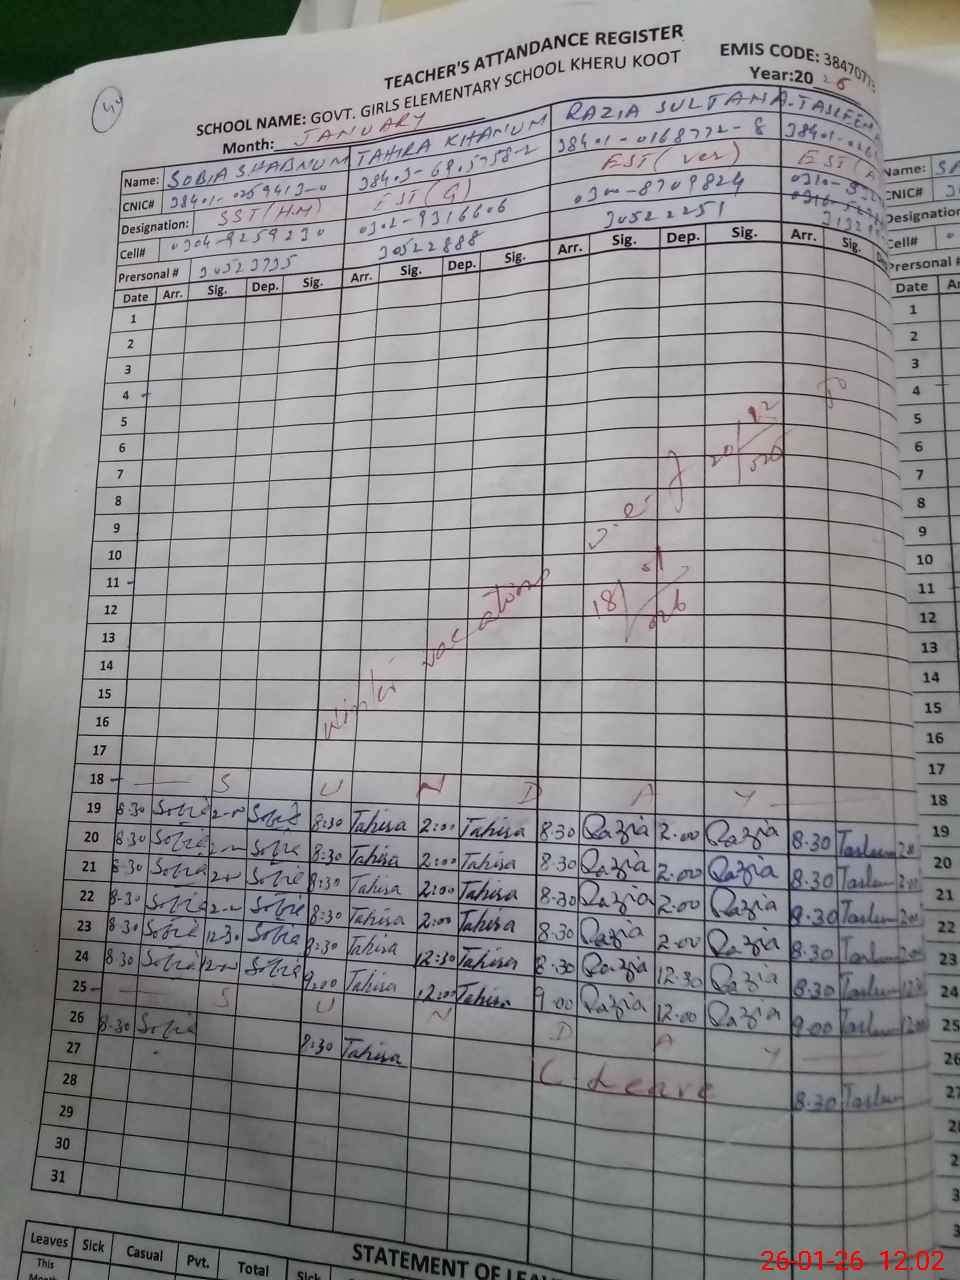 44
TEACHER'S ATTANDANCE REGISTER
SCHOOL NAME: GOVT. GIRLS ELEMENTARY SCHOOL KHERU KOOT
EMIS CODE: 3847077
Month: JANUARY Year:20 26
Name: SOBIA SHABNUM TAHIRA KHANUM RAZIA SULTANA
CNIC# 38401-0259413-0 38401-0168772-8
Designation: SST(H.M) EST(G) EST(ver) EST(A
Cell# 0304-9259230 0302-9316606 0300-8709824
Prersonal # 30523735 30522888 30522251
Date Arr. Sig. Dep. Sig. Arr. Sig. Dep. Sig. Arr. Sig. Dep. Sig. Arr. Sig.
1
2
3
4
5
6
7
8
9
10
11
12
13
14
15
16
17
Winter vacations
18/01/026
18 S U N D A Y
19 8:30 Sobia Sobia 8:30 Tahira 2:00 Tahira 8.30 Razia 2.00 Razia 8.30 Tasleem
20 8:30 Sobia Sobia 8:30 Tahira 2:00 Tahira 8.30 Razia 2.00 Razia 8.30 Tasleem
21 8:30 Sobia Sobia 8:30 Tahira 2:00 Tahira 8.30 Razia 2.00 Razia 8.30 Tasleem
22 8:30 Sobia Sobia 8:30 Tahira 2:00 Tahira 8.30 Razia 2.00 Razia 8.30 Tasleem
23 8:30 Sobia 12:30 Sobia 8:30 Tahira 12:30 Tahira 8.30 Razia 12.30 Razia 8.30 Tasleem
24 8:30 Sobia Sobia 9:00 Tahira 12:00 Tahira 9.00 Razia 12.00 Razia 9.00 Tasleem 12.00
25 S U N D A Y
26 8:30 Sobia 8:30 Tahira C-Leave 8.30 Tasleem
27
28
29
30
31
STATEMENT OF LEAV
Leaves Sick Casual Pvt. Total Sick
This
Name:
CNIC#
Designation
Cell#
Prersonal #
Date
1
2
3
4
5
6
7
8
9
10
11
12
13
14
15
16
17
18
19
20
21
22
23
24
25
26
27
26-01-26 12:02